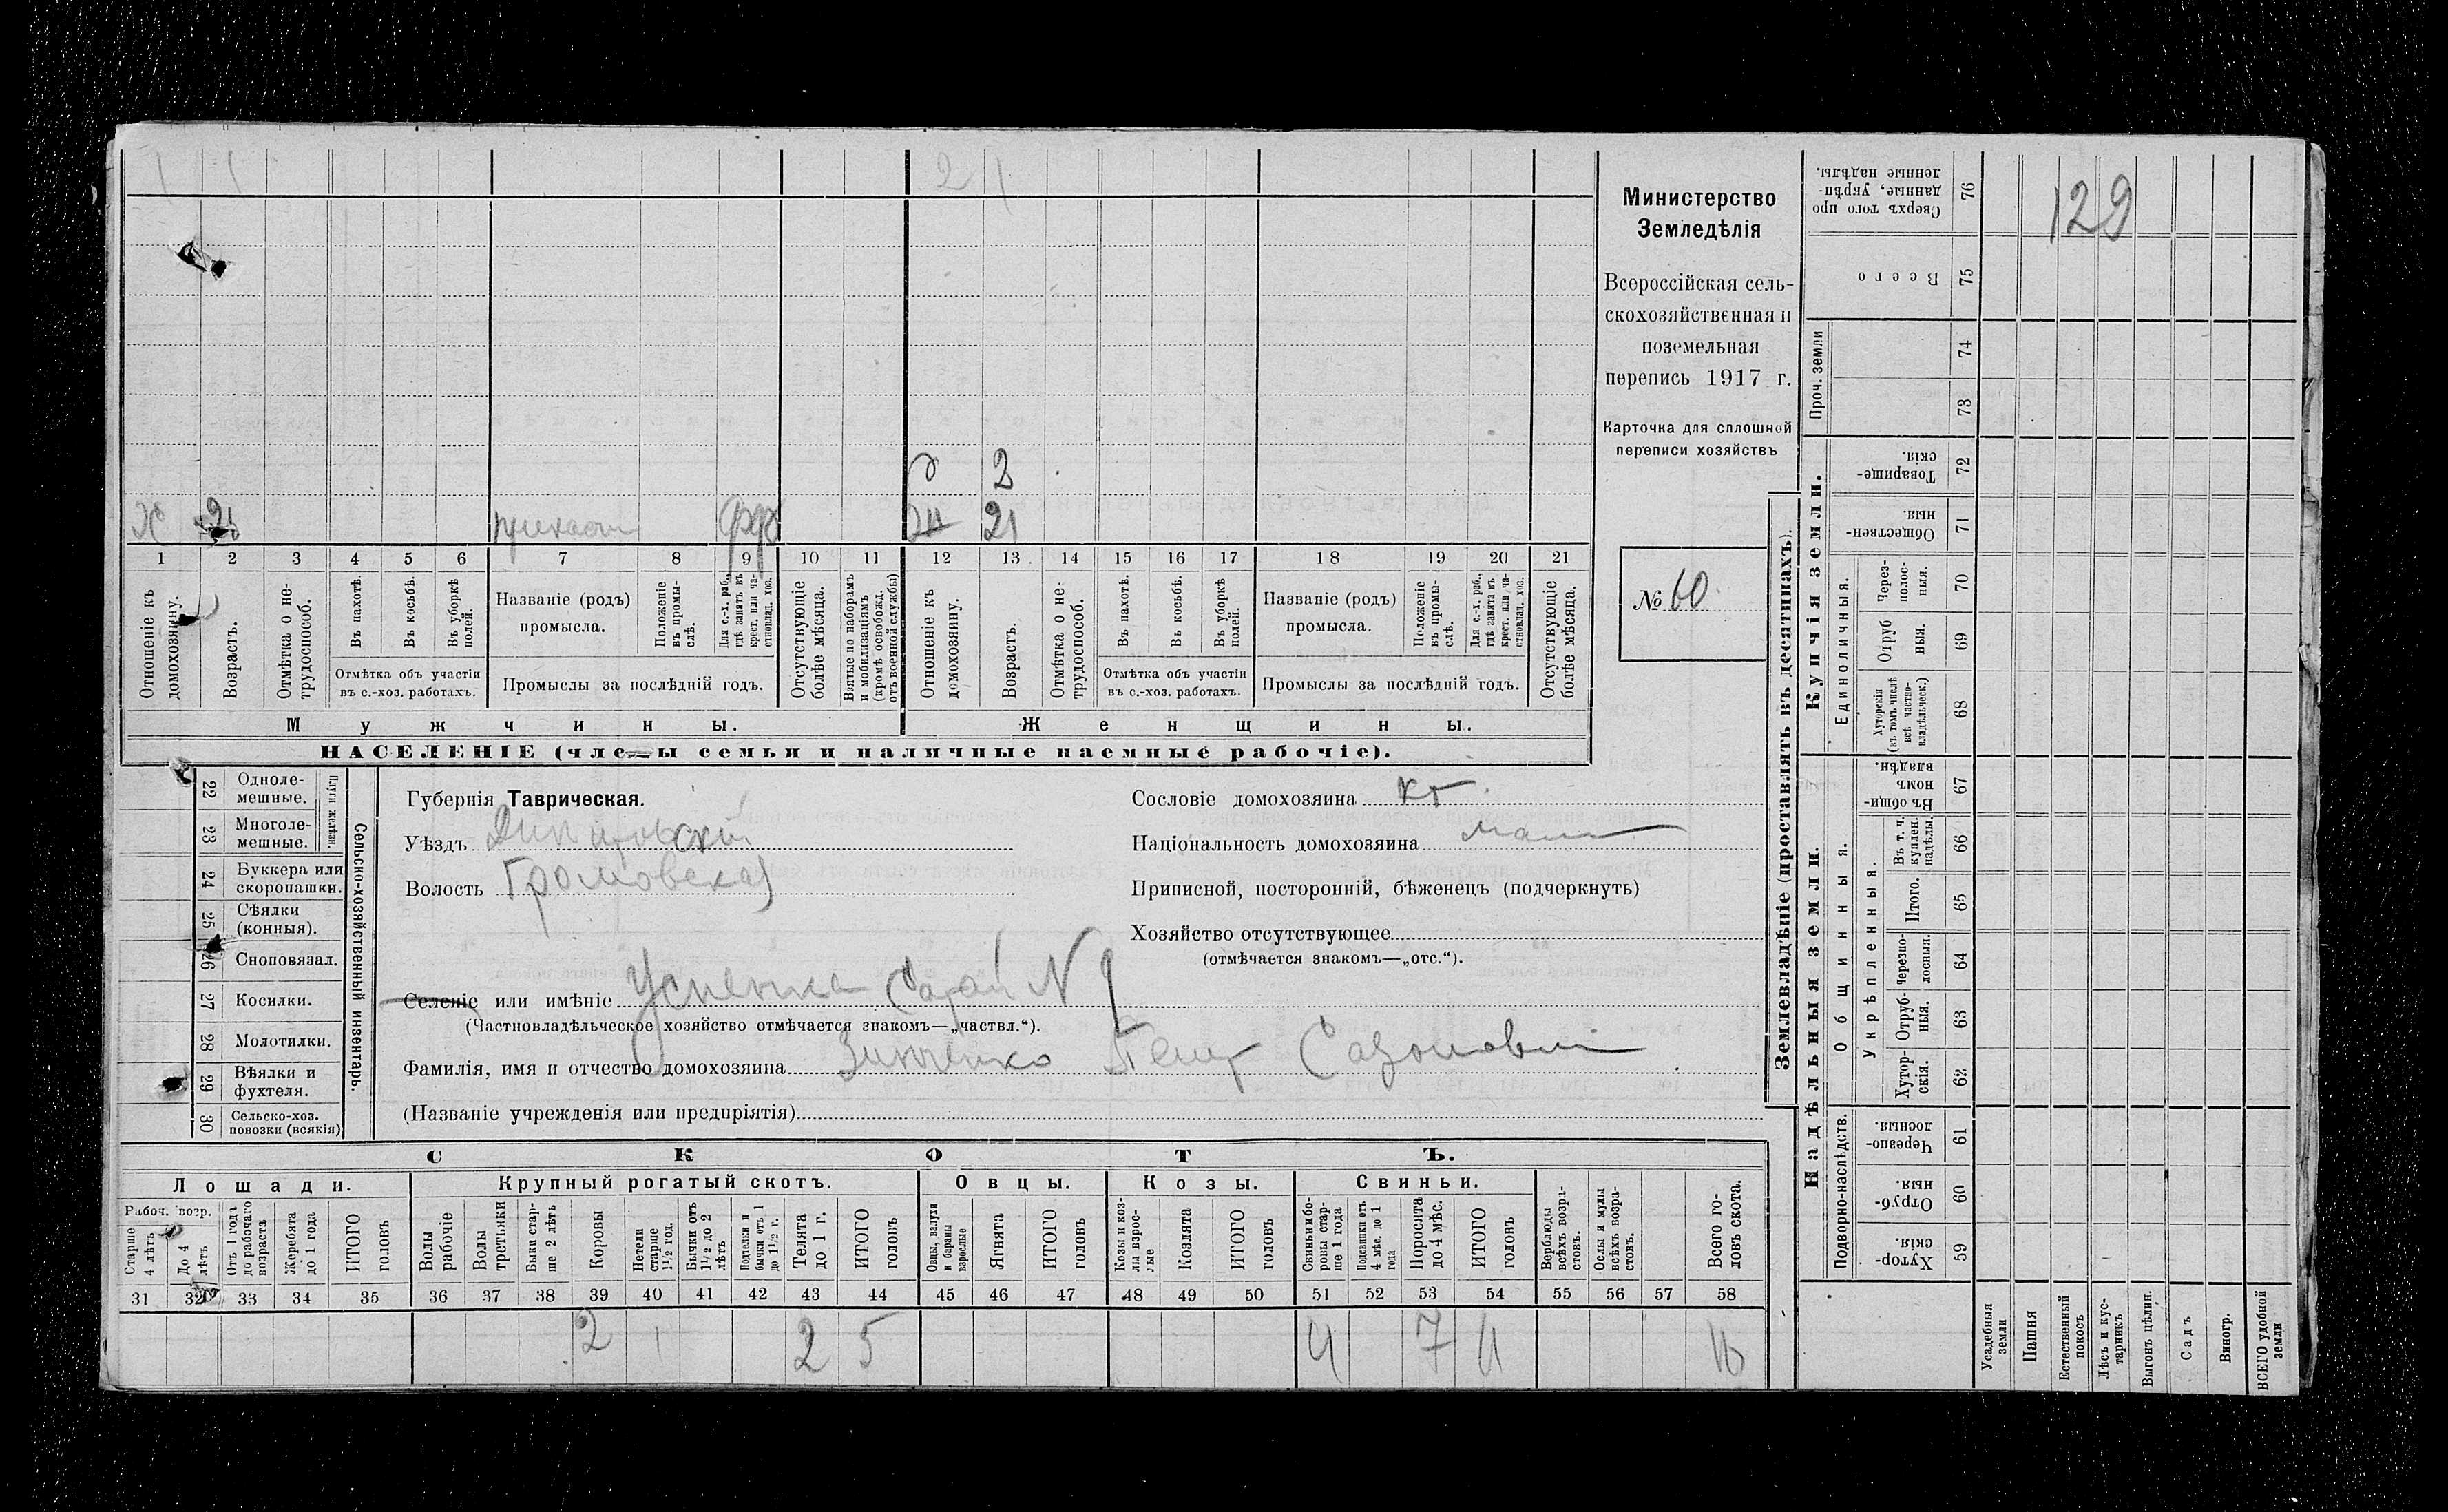 1 1 2 1
129
д 2
х 21 ж 21
1 2 3 4 5 6 7 8 9 10 11 12 13 14 15 16 17 18 19 20 21
Отношеніе къ домохозяину.
Возрастъ.
Отмѣтка о не-
трудоспособ.
Въ пахотѣ.
Въ косьбѣ.
Въ уборкѣ
полей.
Отмѣтка объ участіи
въ с.-хоз. работахъ.
Названіе (родъ)
промысла.
Положеніе
въ промы-
слѣ.
Для с.-х. раб.,
гдѣ занятъ въ
крест. или ча-
стновлад. хоз.
Промыслы за послѣдній годъ.
Отсутствующіе
болѣе мѣсяца.
Взятые по наборамъ
и мобилизаціямъ
(кромѣ освобожд.
отъ военной службы)
Отношеніе къ
домохозяину.
Возрастъ.
Отмѣтка о не-
трудоспособ.
Въ пахотѣ.
Въ косьбѣ.
Въ уборкѣ
полей.
Отмѣтка объ участіи
въ с.-хоз. работахъ.
Названіе (родъ)
промысла.
Положеніе
въ промы-
слѣ.
Для с.-х. раб.,
гдѣ занята въ
крест. или ча-
стновлад. хоз.
Промыслы за послѣдній годъ.
Отсутствующіе
болѣе мѣсяца.
Мужчины.
Женщины.
НАСЕЛЕНІЕ (члены семьи и наличные наемные рабочіе).
Министерство
Земледѣлія
Всероссійская сель-
скохозяйственная и
поземельная
перепись 1917 г.
Карточка для сплошной
переписи хозяйствъ
№ 60
22 Однолемешные.
23 Многолемешные.
Плуги желѣзн.
24 Буккера или
скоропашки.
25 Сѣялки
(конныя).
26 Сноповязал.
27 Косилки.
28 Молотилки.
29 Вѣялки и
фухтеля.
30 Сельско-хоз.
повозки (всякія)
Сельско-хозяйственный инвентарь.
Губернія Таврическая.
Уѣздъ Днепровскій
Волость Громовская
Селеніе или имѣніе Успенка Сарай N 9
(Частновладѣльческое хозяйство отмѣчается знакомъ—„частвл.“).
Фамилія, имя и отчество домохозяина Зинченко Петр Сазонович
(Названіе учрежденія или предпріятія)
Сословіе домохозяина кр.
Національность домохозяина мал
Приписной, посторонній, бѣженецъ (подчеркнуть)
Хозяйство отсутствующее
(отмѣчается знакомъ—„отс.“).
СКОТЪ.
Лошади. Крупный рогатый скотъ. Овцы. Козы. Свиньи.
Рабоч. возр.
Старше
4 лѣтъ
До 4
лѣтъ
Отъ 1 года
до рабочаго
возраста
Жеребята
до 1 года
ИТОГО
головъ
Волы
рабочіе
Волы
третьяки
Быки стар-
ше 2 лѣтъ
Коровы
Нетели
старше
1½ год.
Бычки отъ
1½ до 2
лѣтъ
Подтелки и
бычки отъ 1
до 1½ г.
Телята
до 1 г.
ИТОГО
головъ
Овцы, валухи
и бараны
взрослые
Ягнята
ИТОГО
головъ
Козы и коз-
лы взрос-
лые
Козлята
ИТОГО
головъ
Свиньи и бо-
ровы стар-
ше 1 года
Подсвинки отъ
4 мѣс. до 1
года
Поросята
до 4 мѣс.
ИТОГО
головъ
Верблюды
всѣхъ возра-
стовъ.
Ослы и мулы
всѣхъ возра-
стовъ.
Всего го-
ловъ скота.
31 32 33 34 35 36 37 38 39 40 41 42 43 44 45 46 47 48 49 50 51 52 53 54 55 56 57 58
2 1 2 5 4 7 11 16
Землевладѣніе (проставлять въ десятинахъ).
Купчія земли.
Надѣльныя земли.
Сверхъ того про
данные, укрѣп-
ленные надѣлы.
76
Всего
75
Проч. земли
74
73
Товарище-
скія.
72
Обществен-
ныя.
71
Единоличныя.
Через-
полос-
ныя.
70
Отруб
ныя.
69
Хуторскія
(въ томъ числѣ
всѣ частно-
владѣльческ.)
68
Общинныя.
Въ общи-
номъ
владѣн.
67
Укрѣпленныя.
Въ т. ч.
куплен.
надѣлы.
66
Итого.
65
Черезпо-
лосныя.
64
Отруб-
ныя.
63
Хутор-
скія.
62
Подворно-наслѣдств.
Черезпо-
лосныя.
61
Отруб-
ныя.
60
Хутор-
скія.
59
Усадебныя
земли
Пашня
Естественный
покосъ
Лѣсъ и кус-
тарникъ
Выгонъ цѣлин.
Садъ
Виногр.
ВСЕГО удобной
земли